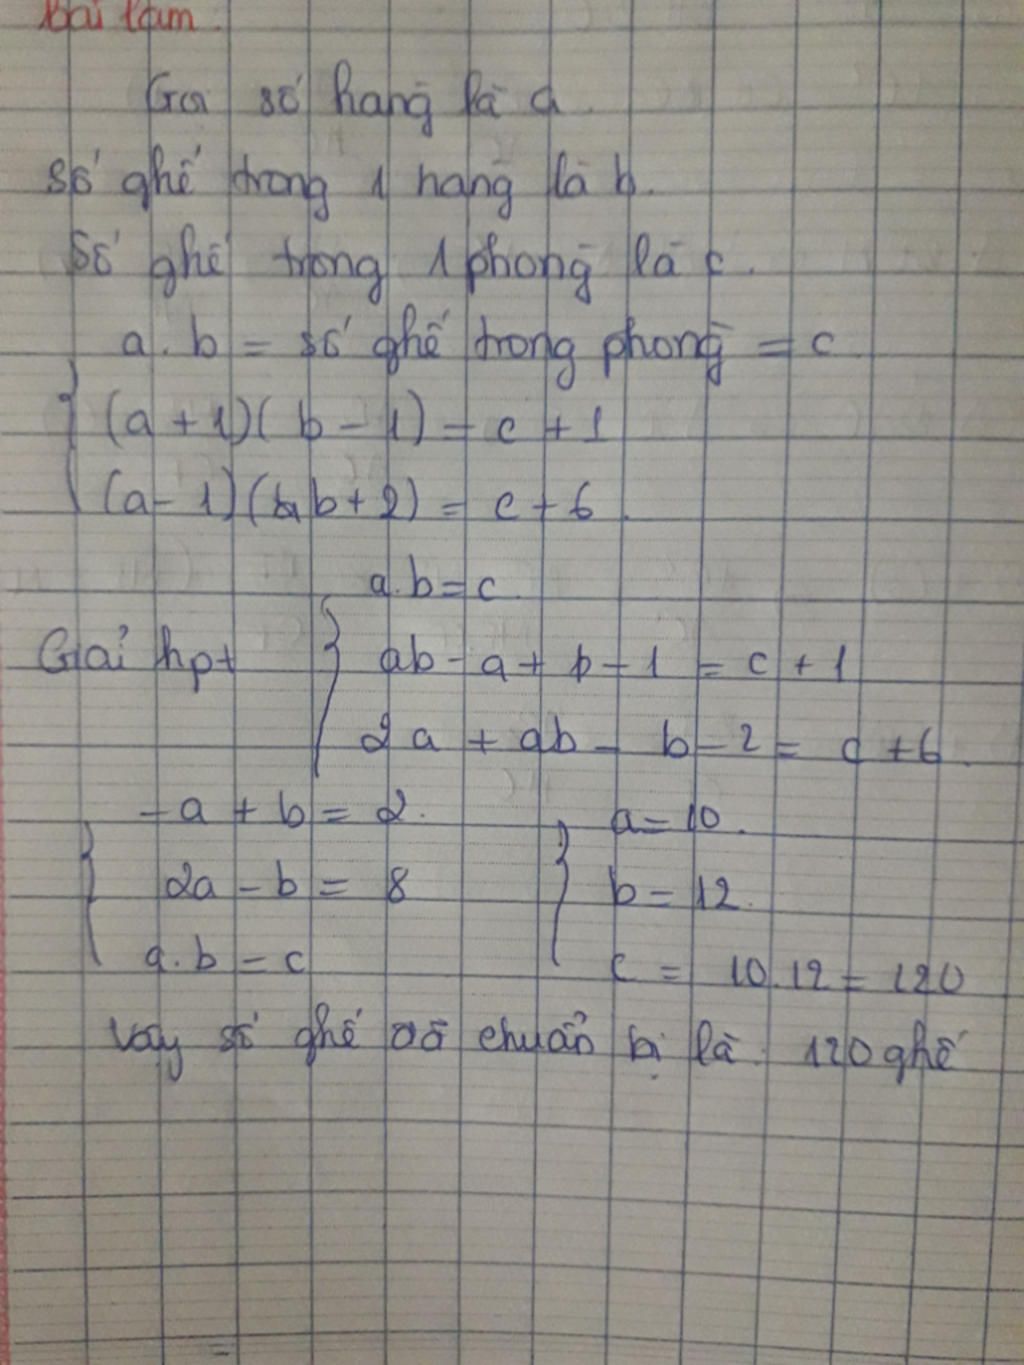 Bài làm.
Gọi số hàng là a.
số ghế trong 1 hàng là b.
Số ghế trong 1 phòng là c.
a.b = số ghế trong phòng = c
(a + 1)(b - 1) = c + 1
(a - 1)(b + 2) = c + 6.
a.b = c
Giải hpt
ab - a + b - 1 = c + 1
2a + ab - b - 2 = c + 6.
- a + b = 2.
2a - b = 8
a.b = c
a = 10.
b = 12.
c = 10.12 = 120
Vậy số ghế đã chuẩn bị là 120 ghế
=